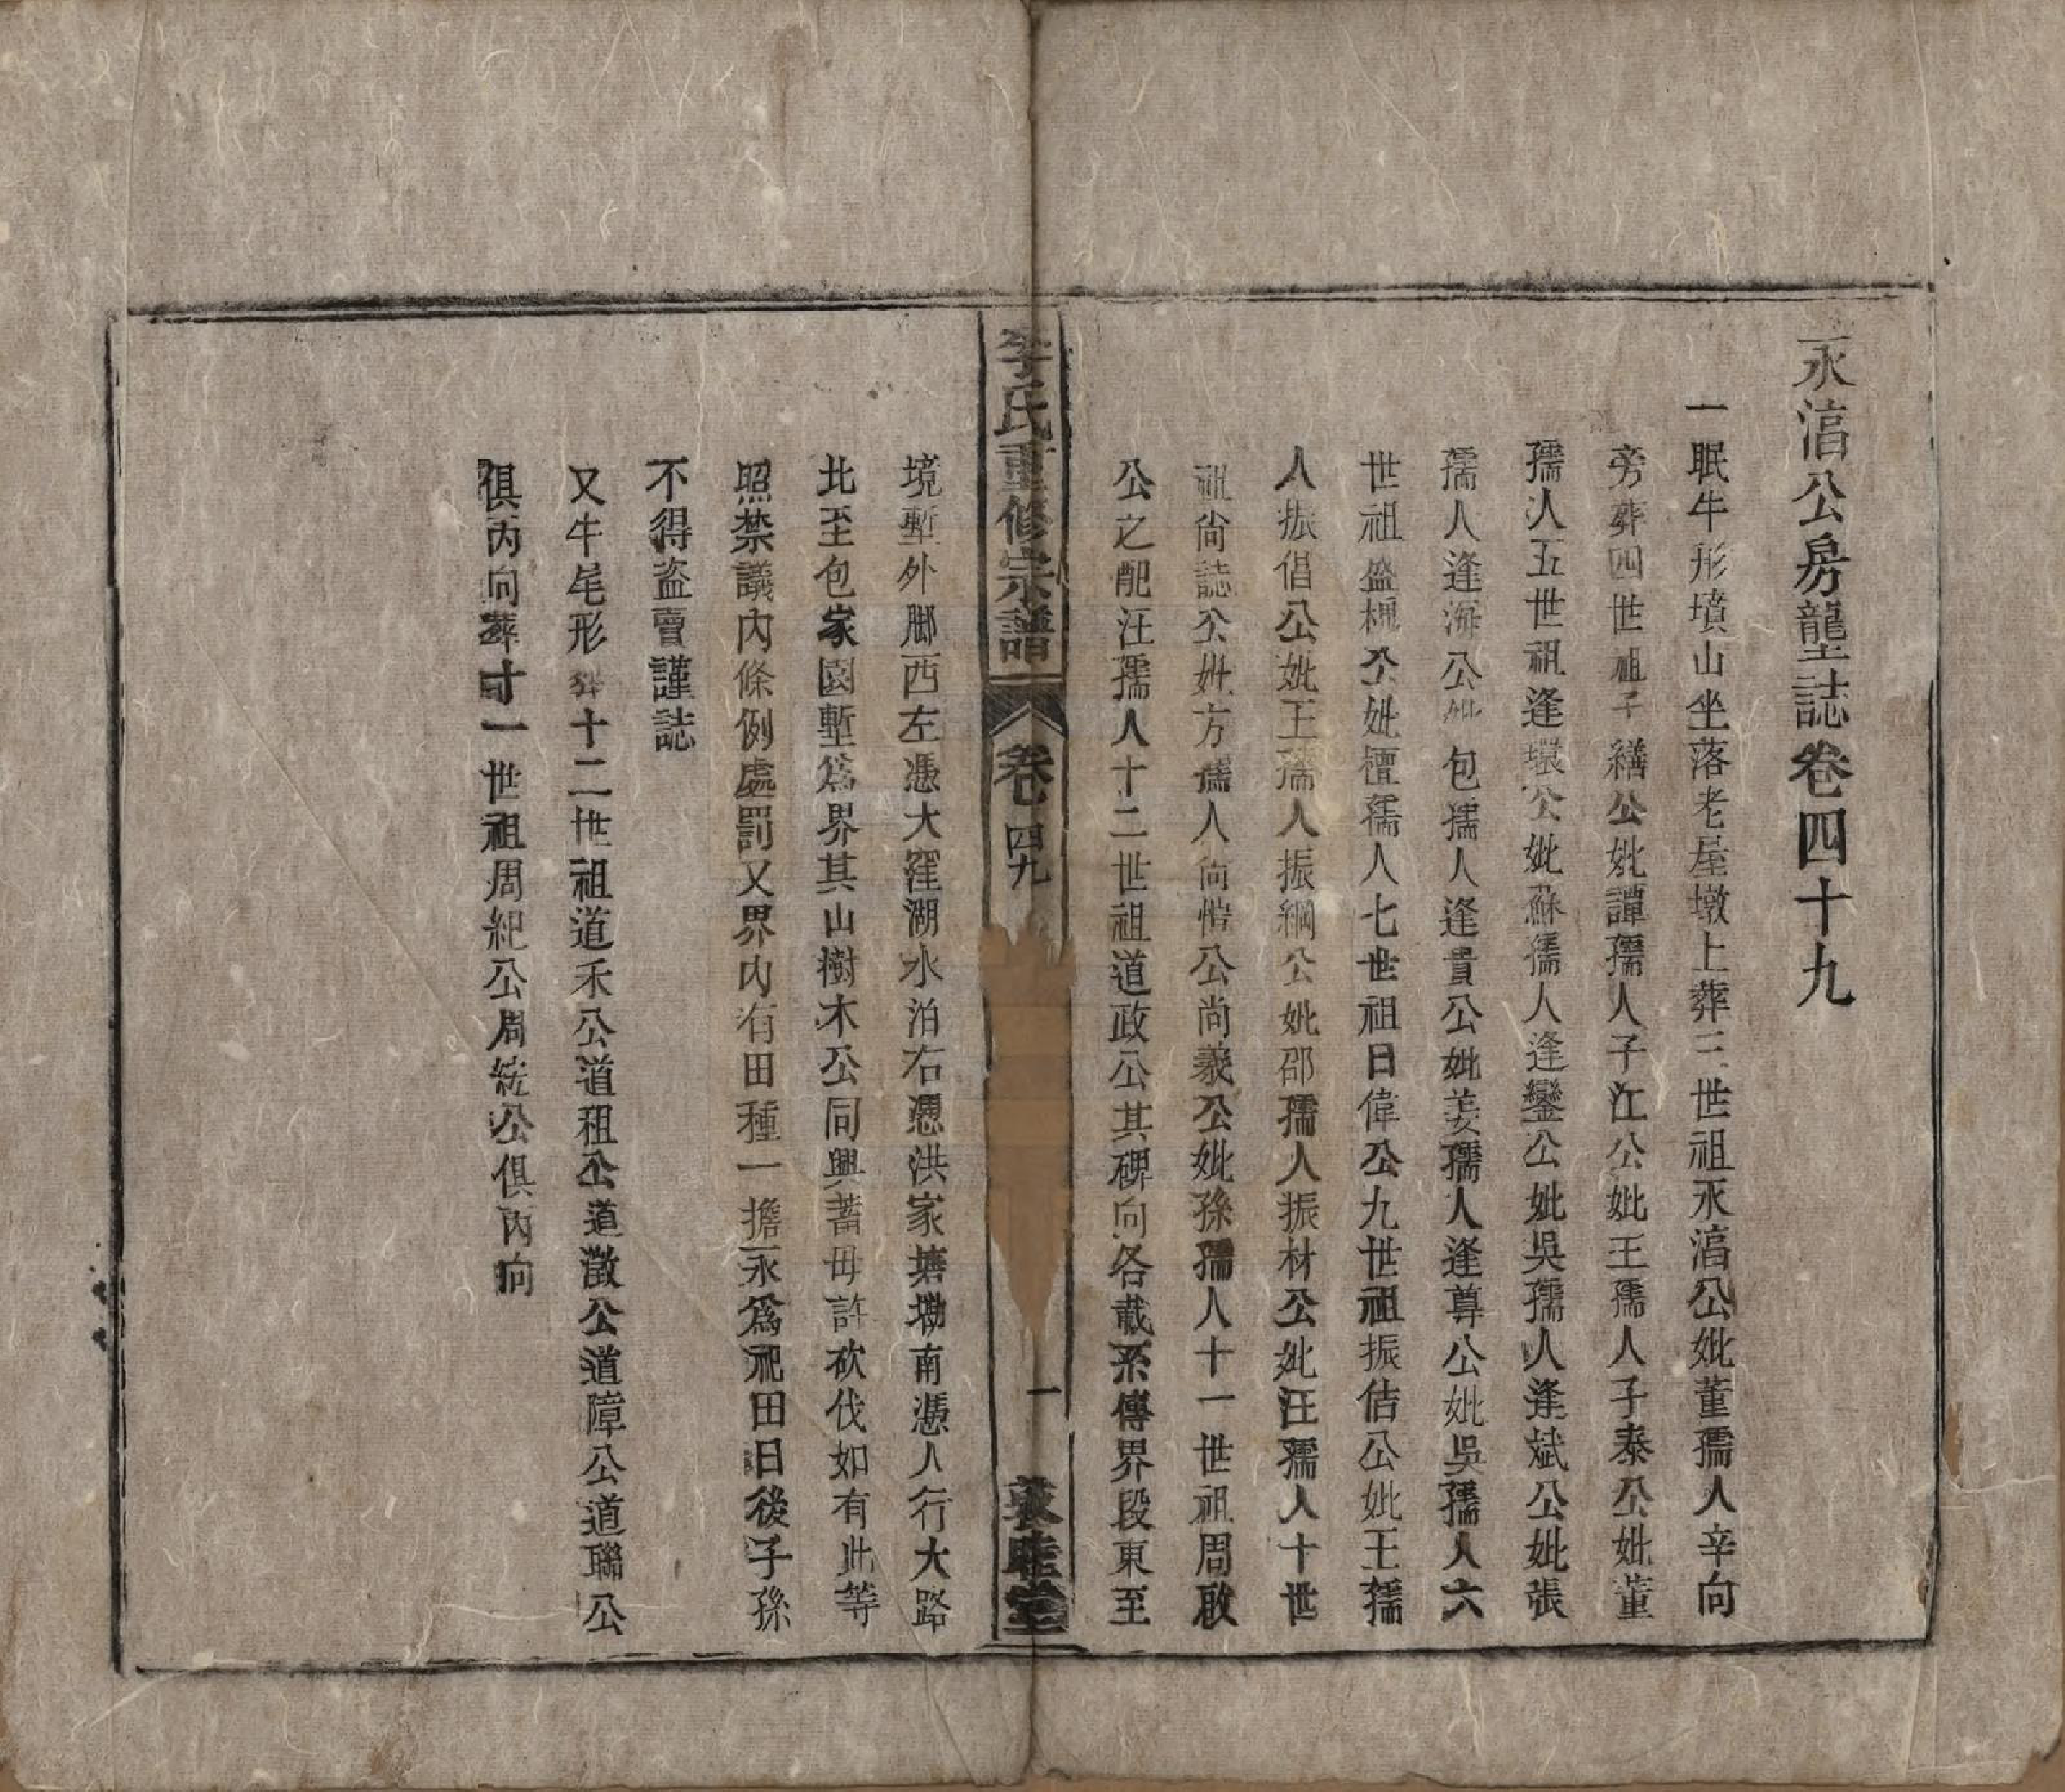 永湻公房壟誌卷四十九
一眠牛形墳山坐落老屋墩上葬三世祖永湻公妣董孺人辛向
旁葬四世祖子繕公妣譚孺人子江公妣王孺人子泰公妣董
孺人五世祖逢環公妣蘇孺人逢鑾公妣吳孺人逢斌公妣張
孺人逢海公妣包孺人逢貴公妣姜孺人逢尊公妣吳孺人六
世祖盛槐公妣檀孺人七世祖日偉公九世祖振佶公妣王孺
人振倡公妣王孺人振綱公妣邵孺人振材公妣汪孺人十世
祖尙誌公妣方孺人尙愷公尙義公妣孫孺人十一世祖周啟
公之配汪孺人十二世祖道政公其碑向各載系傳界段東至
李氏重修宗譜 卷四九 一 堂
境塹外脚西左憑大窪湖水泊右憑洪家塘坳南憑人行大路
北至包家園塹爲界其山樹木公同興蓄毋許砍伐如有此等
照禁議內條例處罰又界內有田種一擔永爲祀田日後子孫
不得盜賣謹誌
又牛尾形葬十二世祖道禾公道租公道徵公道障公道聯公
俱丙向葬十一世祖周紀公周統公俱丙向